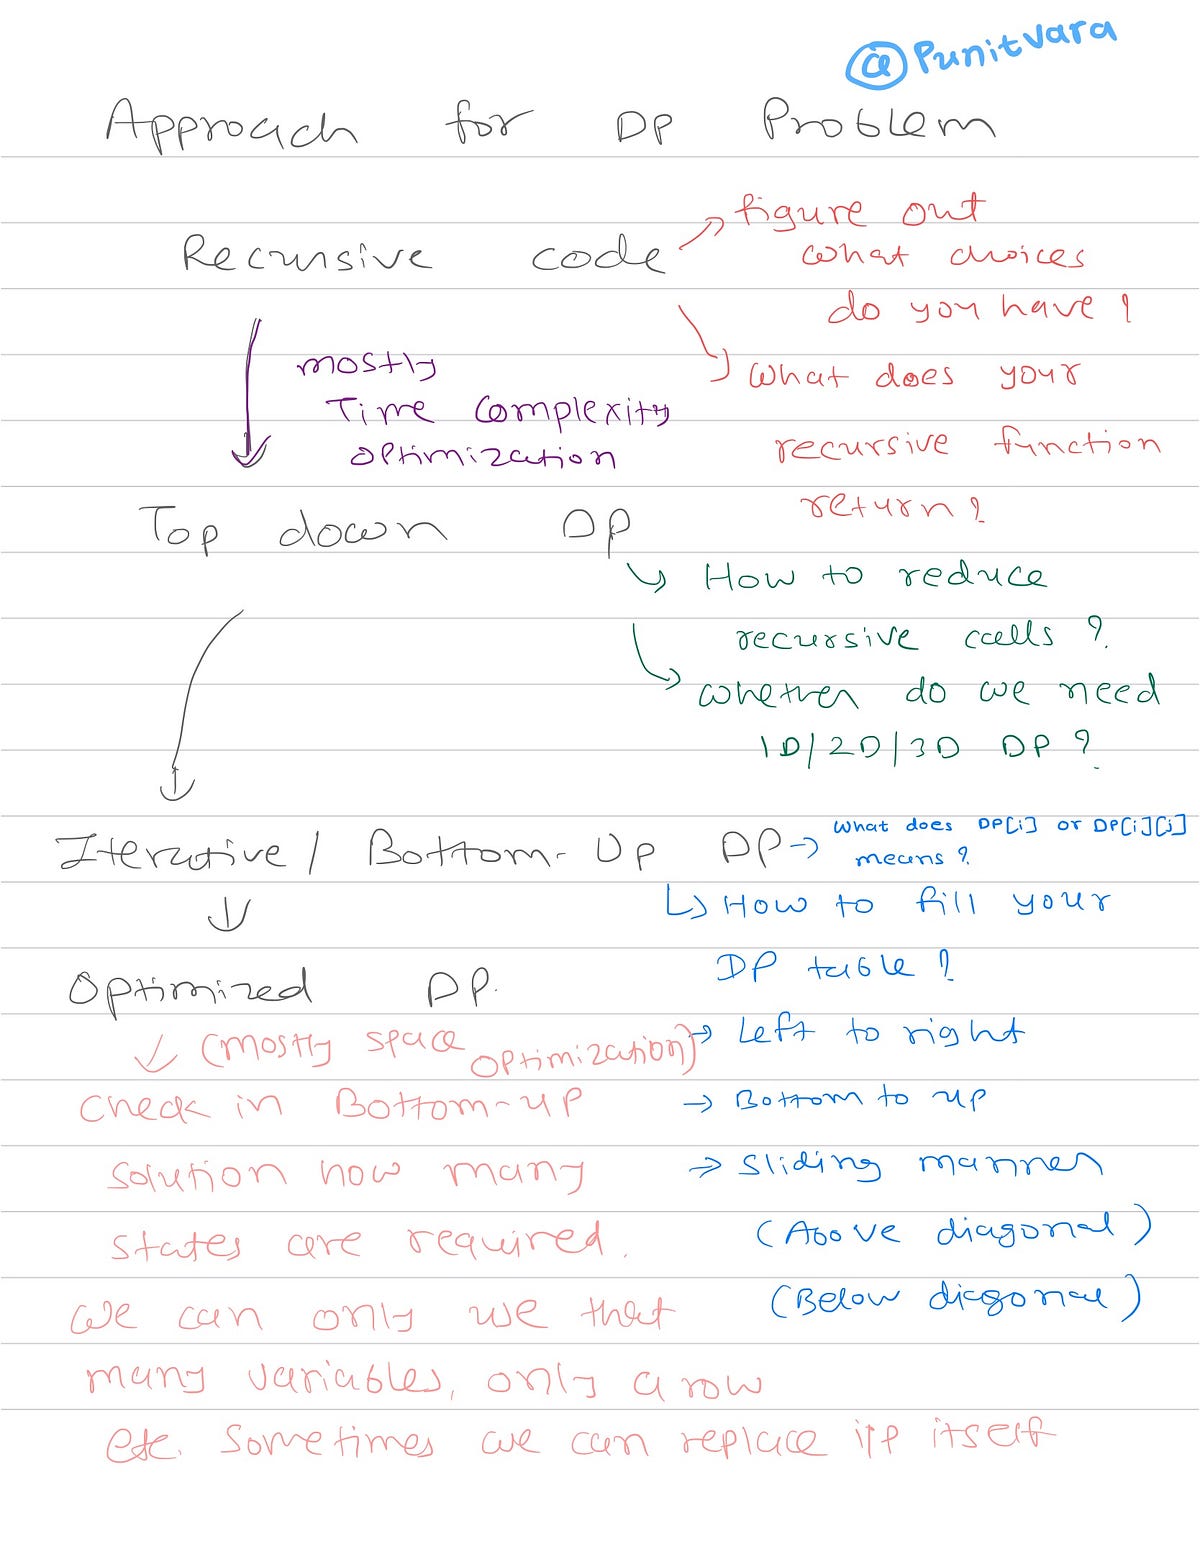 @Punitvara
Approach for DP Problem
Recursive code
figure out
what choices
do you have?
what does your
recursive function
return?
mostly
Time Complexity
optimization
Top down DP
How to reduce
recursive calls?
whether do we need
1D/2D/3D DP?
Iterative/ Bottom-Up DP
what does DP[i] or DP[i][j]
means?
How to fill your
DP table?
Left to right
Bottom to up
Sliding manner
(Above diagonal)
(Below diagonal)
Optimized DP.
(mostly space optimization)
check in Bottom-up
solution how many
states are required.
we can only we that
many variables, only a row
etc. Sometimes we can replace i/p itself